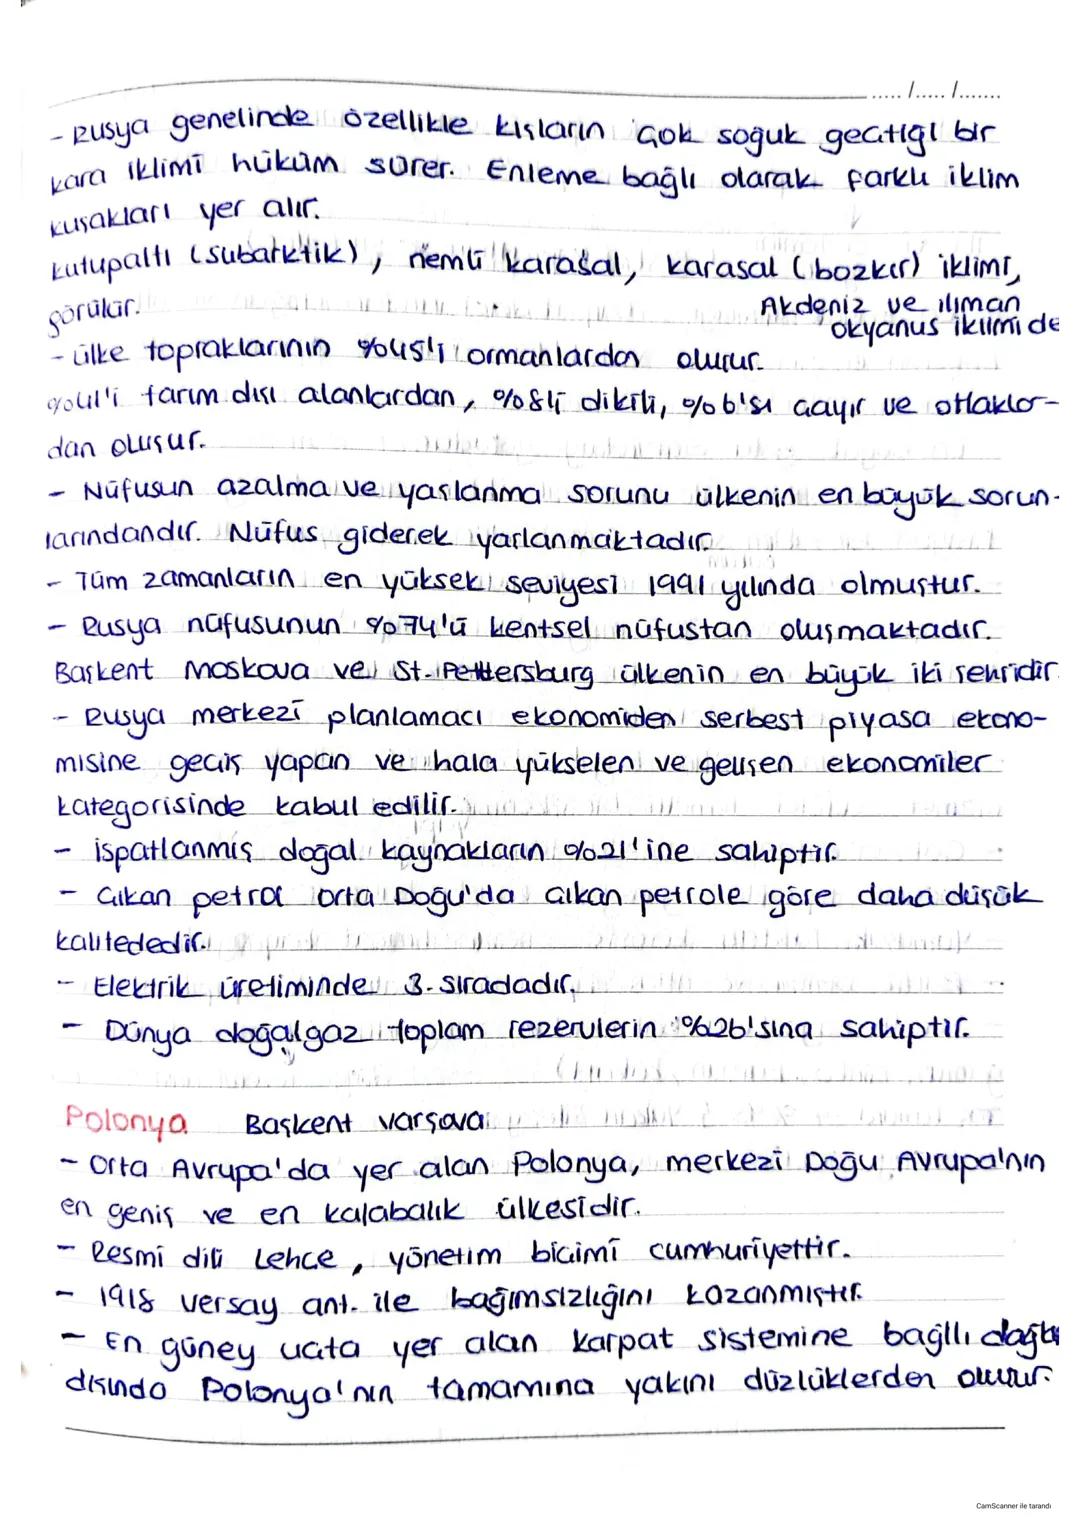 ..... /..... /.......
- Rusya genelinde özellikle kışların çok soğuk geçtiği bir
kara iklimi hüküm sürer. Enleme bağlı olarak farklı iklim
kuşakları yer alır.
kutupaltı (subarktik), nemli karasal, karasal (bozkır) iklimi,
Akdeniz ve ılıman
okyanus iklimi de
görülür.
- ülke topraklarının %45'i ormanlardan oluşur.
%41'i tarım dışı alanlardan, %8'i dikili, %6'sı çayır ve otlaklar-
dan oluşur.
- Nüfusun azalma ve yaşlanma sorunu ülkenin en büyük sorun-
larındandır. Nüfus giderek yaşlanmaktadır.
- Tüm zamanların en yüksek seviyesi 1991 yılında olmuştur.
- Rusya nüfusunun %74'ü kentsel nüfustan oluşmaktadır.
Başkent Moskova ve St. Pettersburg ülkenin en büyük iki şehridir.
- Rusya merkezi planlamacı ekonomiden serbest piyasa ekono-
misine geçiş yapan ve hala yükselen ve gelişen ekonomiler
kategorisinde kabul edilir.
- ispatlanmış doğal kaynakların %21'ine sahiptir.
- Çıkan petrol Orta Doğu'da çıkan petrole göre daha düşük
kalitededir.
- Elektrik üretiminde 3. sıradadır.
- Dünya doğalgaz toplam rezervlerin %26'sına sahiptir.
Polonya Başkent Varşova
- Orta Avrupa'da yer alan Polonya, merkezi Doğu Avrupa'nın
en geniş ve en kalabalık ülkesidir.
- Resmi dili Lehçe, yönetim biçimi cumhuriyettir.
- 1918 versay ant. ile bağımsızlığını kazanmıştır.
- En güney uçta yer alan Karpat sistemine bağlı dağlar
dışında Polonya'nın tamamına yakını düzlüklerden oluşur.
CamScanner ile tarandı